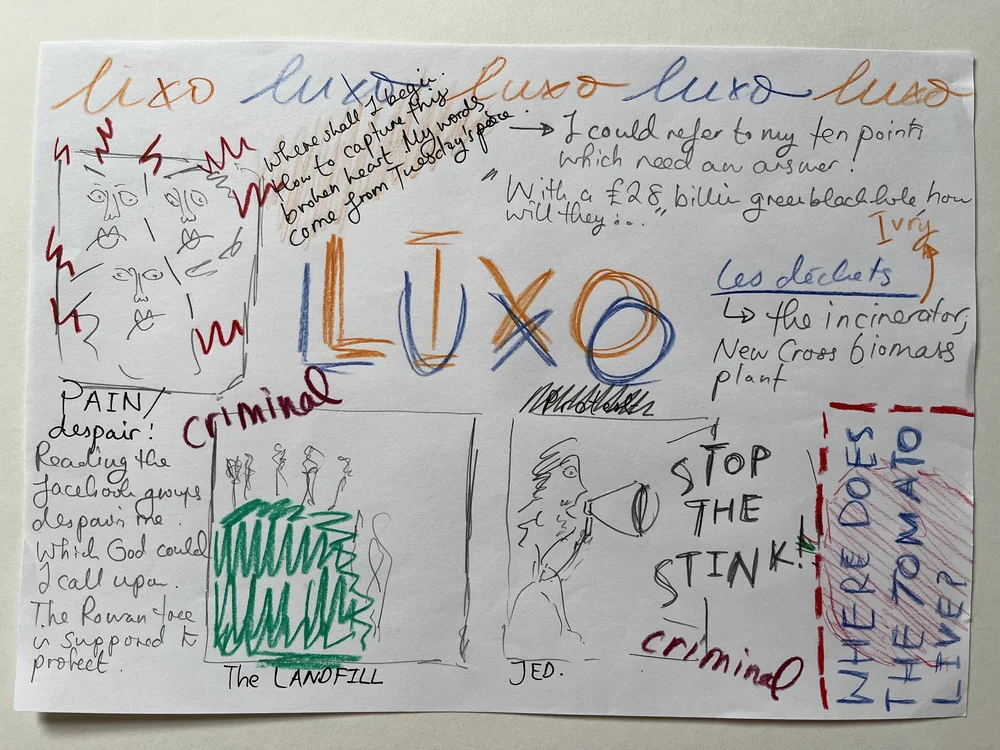 lixo luxo luxo luxo luxo
Where shall I begin.
How to capture this
broken heart. My words
come from Tuesday's piece.
→ I could refer to my ten points
which need an answer!
"With a £28 billin green black hole how
will they...."
LUXO
LIXO
Ivry
Les déchets
↳ the incinerator,
New Cross biomass
plant
PAIN/
despair!
Reading the
facebook groups
despairs me.
Which God could
I call upon.
The Rowan tree
is supposed to
protect.
criminal
The LANDFILL
JED.
STOP
THE
STINK!
criminal
WHERE DOES
THE TOMATO
LIVE?